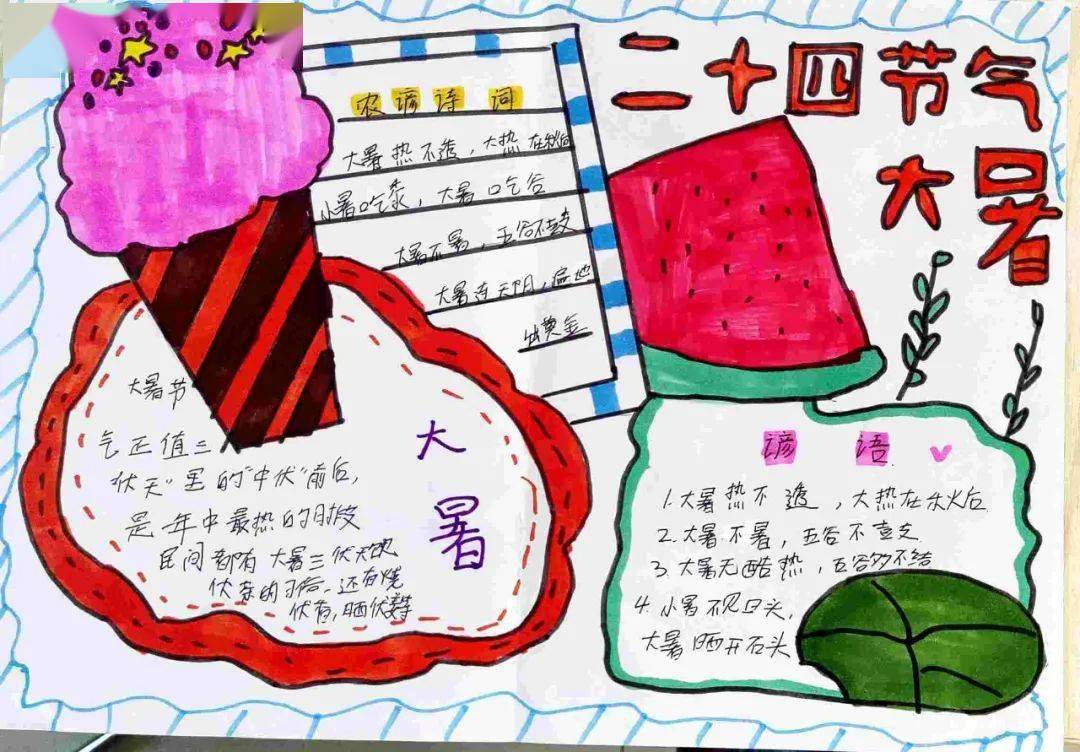 二十四节气
大暑
农谚诗词
大暑热不透，大热在秋后
小暑吃黍，大暑吃谷
大暑不暑，五谷不鼓
大暑连天阴，遍地
出黄金
大暑节
气正值三
伏天"里的"中伏"前后，
是一年中最热的时段
民间都有大暑三伏天
伏茶的习俗，还有烧
伏香，晒伏
大
暑
谚语
1.大暑热不透，大热在秋后
2.大暑不暑，五谷不鼓
3.大暑无酷热，五谷多不结
4.小暑不见日头，
大暑晒开石头